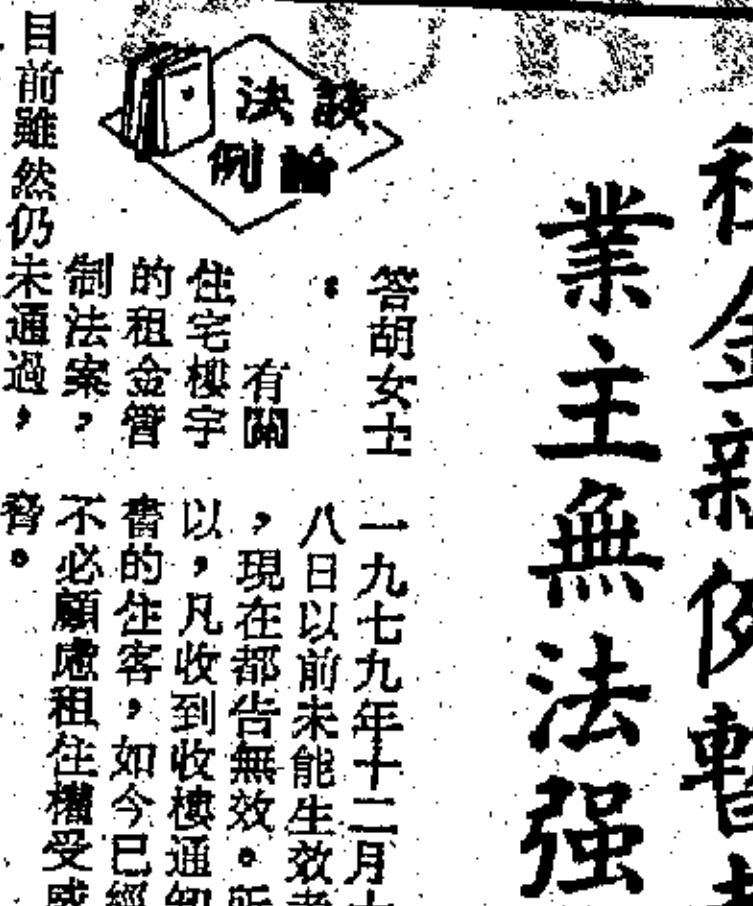 租金新例暫
業主無法强
談論
法例
答胡女士
：
有關
住宅樓宇
的租金管
制法案，
目前雖然仍未通過，
一九七九年十二月十
八日以前未能生效者
，現在都告無效。所
以，凡收到收樓通知
書的住客，如今已經
不必顧慮租住權受威
脅。